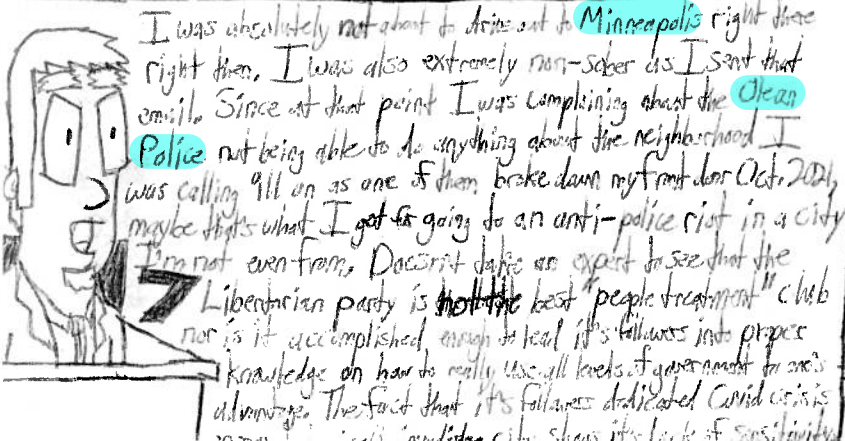 I was absolutely not about to drive out to Minneapolis right there
right then. I was also extremely non-sober as I sent that
email. Since at that point I was complaining about the Olean
Police not being able to do anything about the neighborhood I
was calling ill on as one of them broke down my front door Oct. 2021,
maybe that's what I get for going to an anti-police riot in a city
I'm not even from. Doesn't take an expert to see that the
Libertarian party is not the best "people treatment" club
nor is it accomplished enough to lead it's followers into proper
knowledge on how to really use all levels of government to one's
advantage. The fact that it's followers dedicated Covid crisis
city shows it's lack of sensitivity